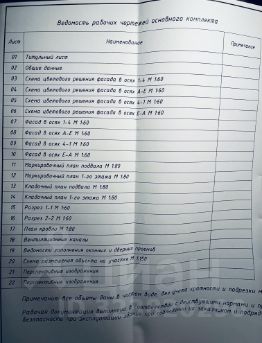 Ведомость рабочих чертежей основного комплекта
Лист Наименование Примечание
01 Титульный лист
02 Общие данные
03 Схема цветового решения фасада в осях 1-4 М 1:60
04 Схема цветового решения фасада в осях А-Е М 1:60
05 Схема цветового решения фасада в осях 4-1 М 1:60
06 Схема цветового решения фасада в осях Е-А М 1:60
07 Фасад в осях 1-4 М 1:60
08 Фасад в осях А-Е М 1:60
09 Фасад в осях 4-1 М 1:60
10 Фасад в осях Е-А М 1:60
11 Маркировочный план подвала М 1:80
12 Маркировочный план 1-го этажа М 1:80
13 Кладочный план подвала М 1:80
14 Кладочный план 1-го этажа М 1:80
15 Разрез 1-1 М 1:60
16 Разрез 2-2 М 1:60
17 План кровли М 1:80
18 Вентиляционные каналы
19 Ведомости заполнения оконных и дверных проемов
20 Схема размещения объекта на участке
21 Перспективные изображения
22 Перспективные изображения
Примечание: все объемы даны в чистом виде, без учета кратности и подрезки
Рабочая документация выполнена в соответствии с действующими нормами и
безопасность при эксплуатации